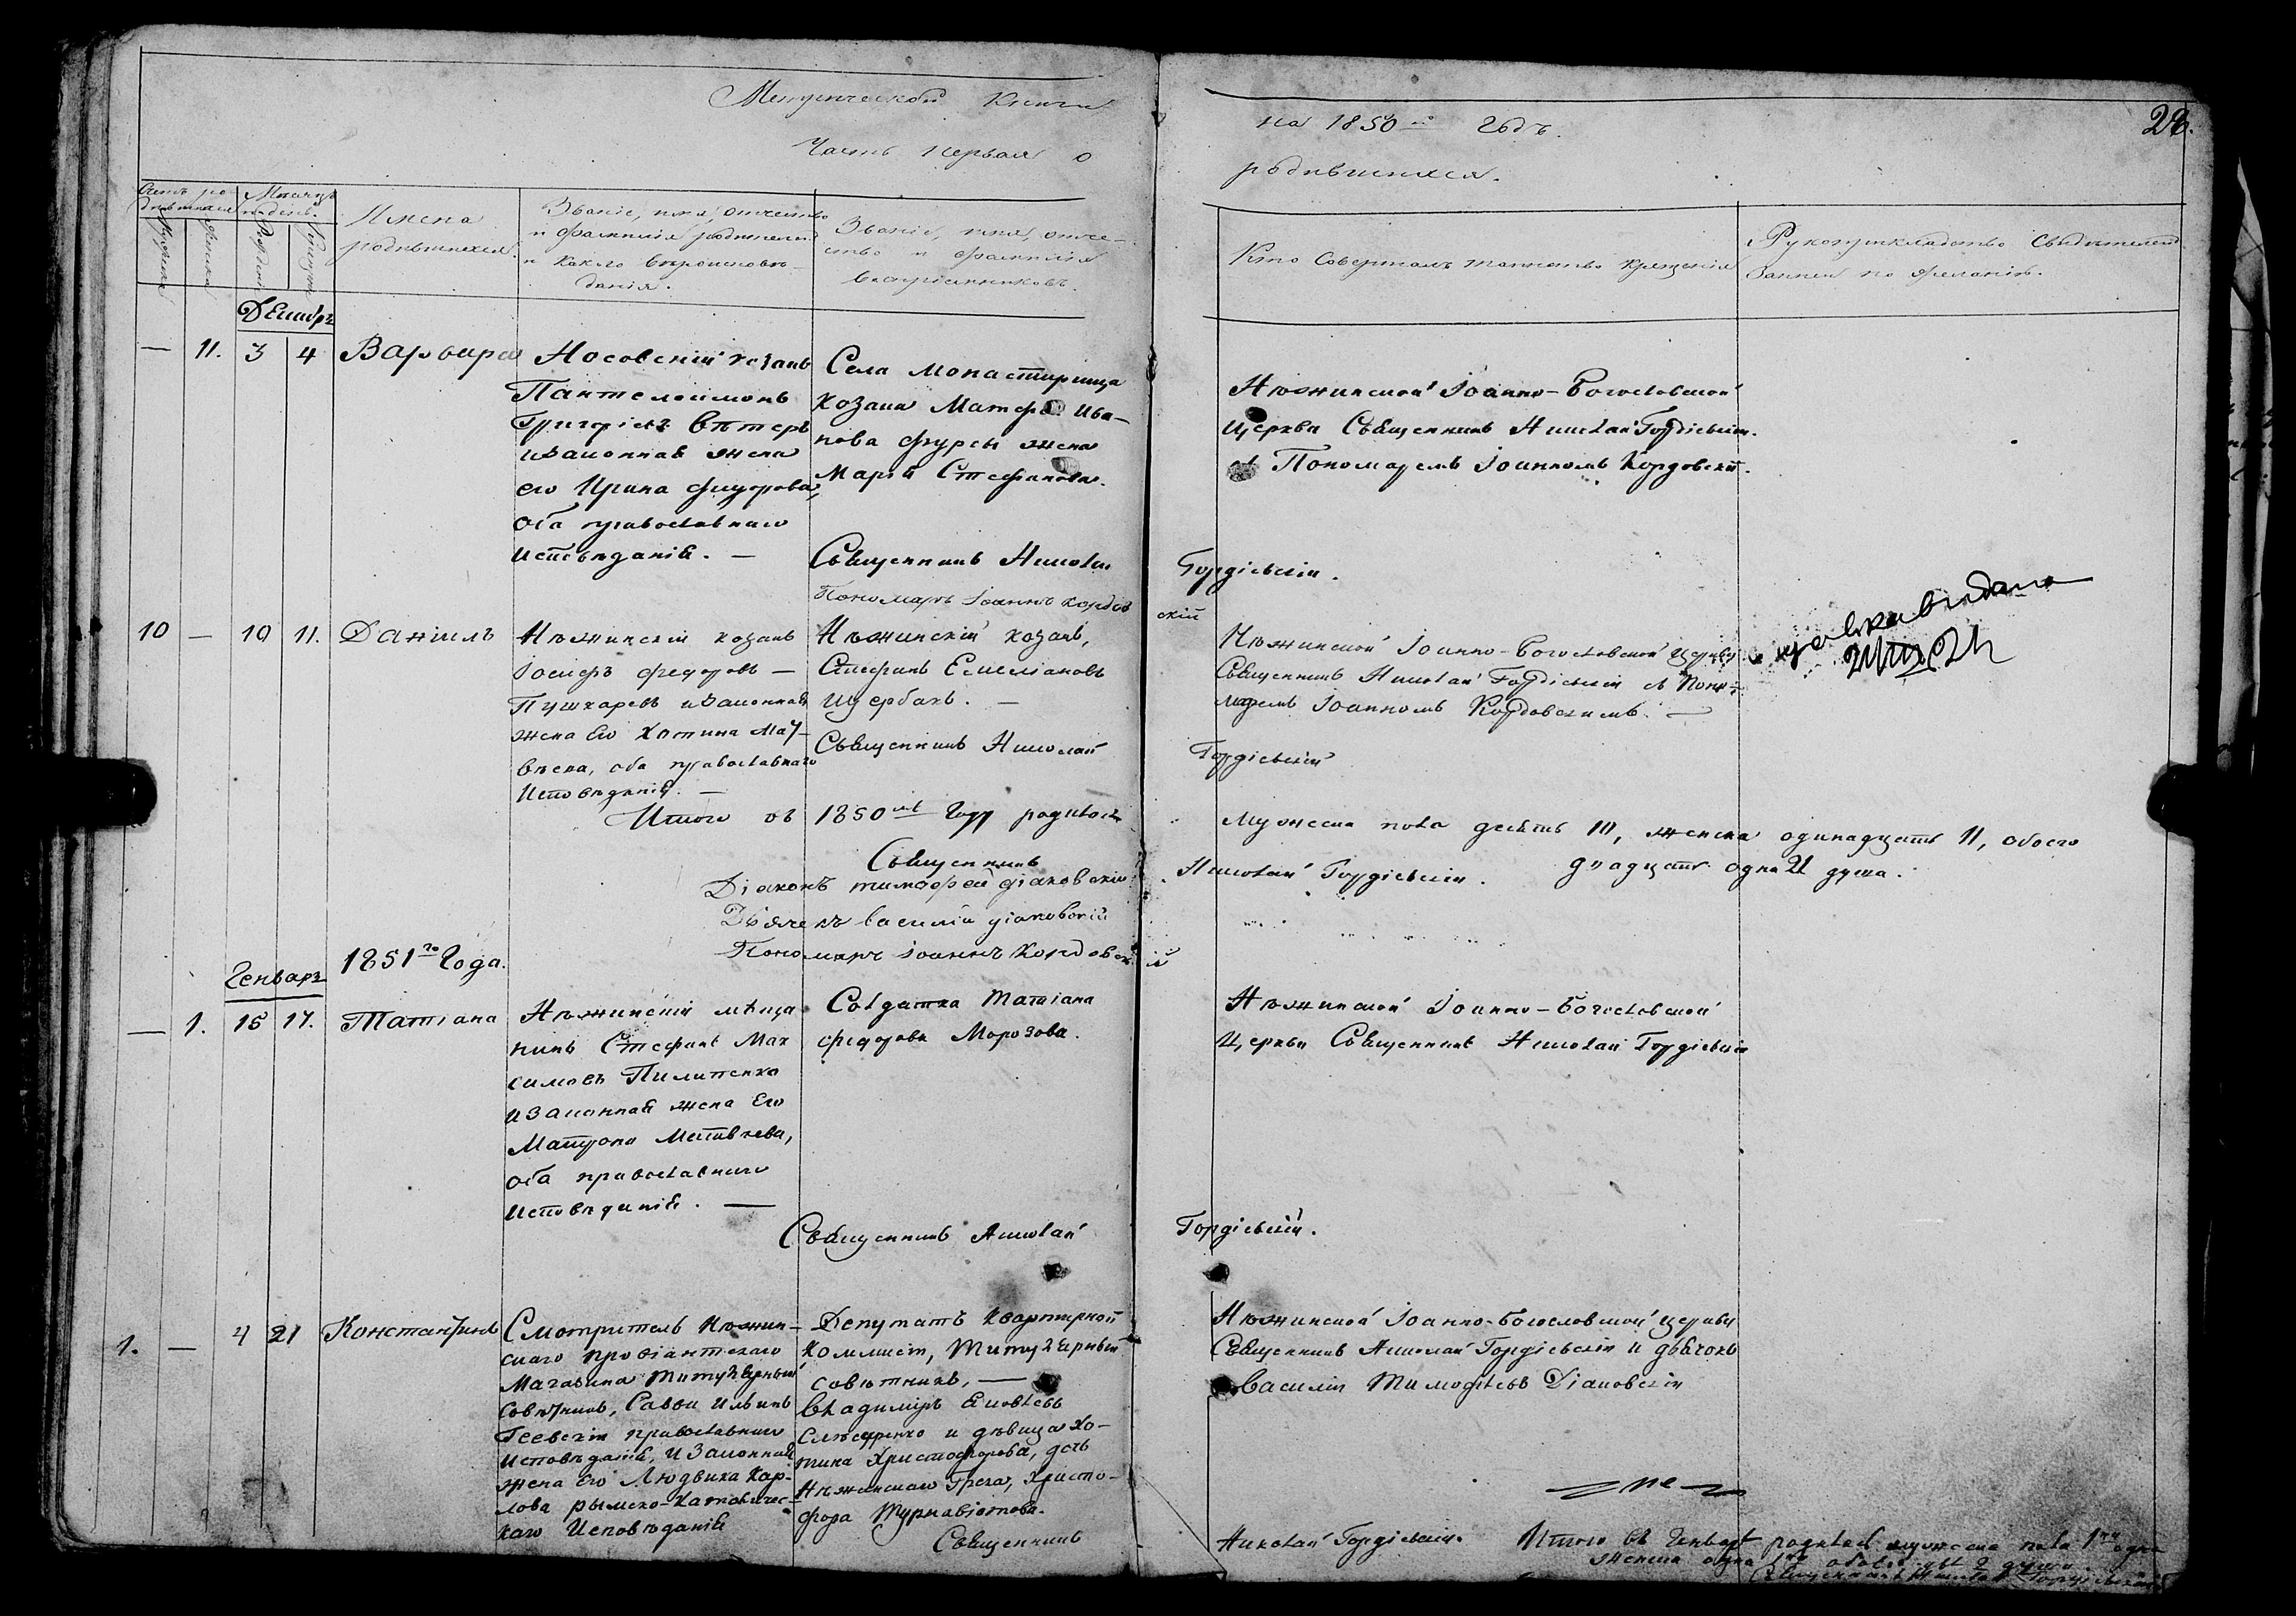 Метрической Книги
на 1850й годъ.
28.
Часть первая о
родившихся.
Счетъ ро-
дившихся
Мѣсяцъ
и день.
Имена
родившихся.
Званіе, имя, отчество
и фамилія родителей
и какого вѣроисповѣ-
данія.
Званіе, имя, отче-
ство и фамилія
воспріемниковъ.
Кто совершалъ таинство крещенія
Рукоприкладство свидѣтелей
записи по желанію.
Декабрь
— 11. 3 4 Варвара
Носовскій козакъ
Пантелеимонъ
Григоріевъ Вѣтеръ
и законная жена
его Ирина Федорова,
оба православнаго
исповѣданія. —
Села Монастирища
козака Матфея Ива-
нова Фурсы жена
Марія Стефанова.
Нѣжинской Іоанно-Богословской
Церкви Священникъ Николай Гордіевскій.
съ Пономаремъ Іоанномъ Кордовскій.
Священникъ Николай
Гордіевскій.
Пономарь Іоаннъ Кордов
скій
10 — 10 11. Даніилъ
Нѣжинскій козакъ
Іосифъ Федоровъ —
Пушкаревъ и законная
жена его Хотина
оба православнаго
исповѣданія. —
Нѣжинскій козакъ,
Стефанъ Емеліановъ
Щербакъ. —
Нѣжинской Іоанно-Богословской Церкви
Священникъ Николай Гордіевскій съ Поно-
маремъ Іоанномъ Кордовскимъ. —
Священникъ Николай
Гордіевскій
Итого въ 1850мъ году родилось
мужеска пола десять 10, женска одинадцать 11, обоего
двадцать одна 21 душа.
Священникъ
Николай Гордіевскій.
Діаконъ Тимофей Діаковскій
Дьячекъ Василій Діаковскій
Пономарь Іоаннъ Кордовск
ій
1851го Года.
Генварь
— 1. 15 17. Татіана
Нѣжинскій мѣща
нинъ Стефанъ Мак
симовъ Пилипенко
и законная жена его
Матрона
оба православнаго
исповѣданія. —
Солдатка Татіана
Федорова Морозова.
Нѣжинской Іоанно-Богословской
Церкви Священникъ Николай Гордіевскій
Священникъ Николай
Гордіевскій.
1. — 4 21 Константинъ
Смотритель Нѣжин-
скаго провіантскаго
Магазина Титулярный
Совѣтникъ, Савва Ильинъ
православнаго
исповѣданія, и законная
жена его Людвика Кар-
лова рымско-католичес-
каго исповѣданія
Депутатъ Квартирной
Коммисіи, Титулярный
совѣтникъ, —
Владиміръ Яковлевъ
Слѣсаренко и дѣвица Хо-
тина Христофорова, дочь
Нѣжинскаго Грека, Христо-
фора
Нѣжинской Іоанно-Богословской церкви
Священникъ Николай Гордіевскій и дьячокъ
Василій Тимофѣевъ Діаковскій
Священникъ
Николай Гордіевскій.
Итого въ Генварѣ родилось мужеска пола 1нъ одна
женска одна 1на обоего двѣ 2 души.
Священникъ Николай Гордіевскій